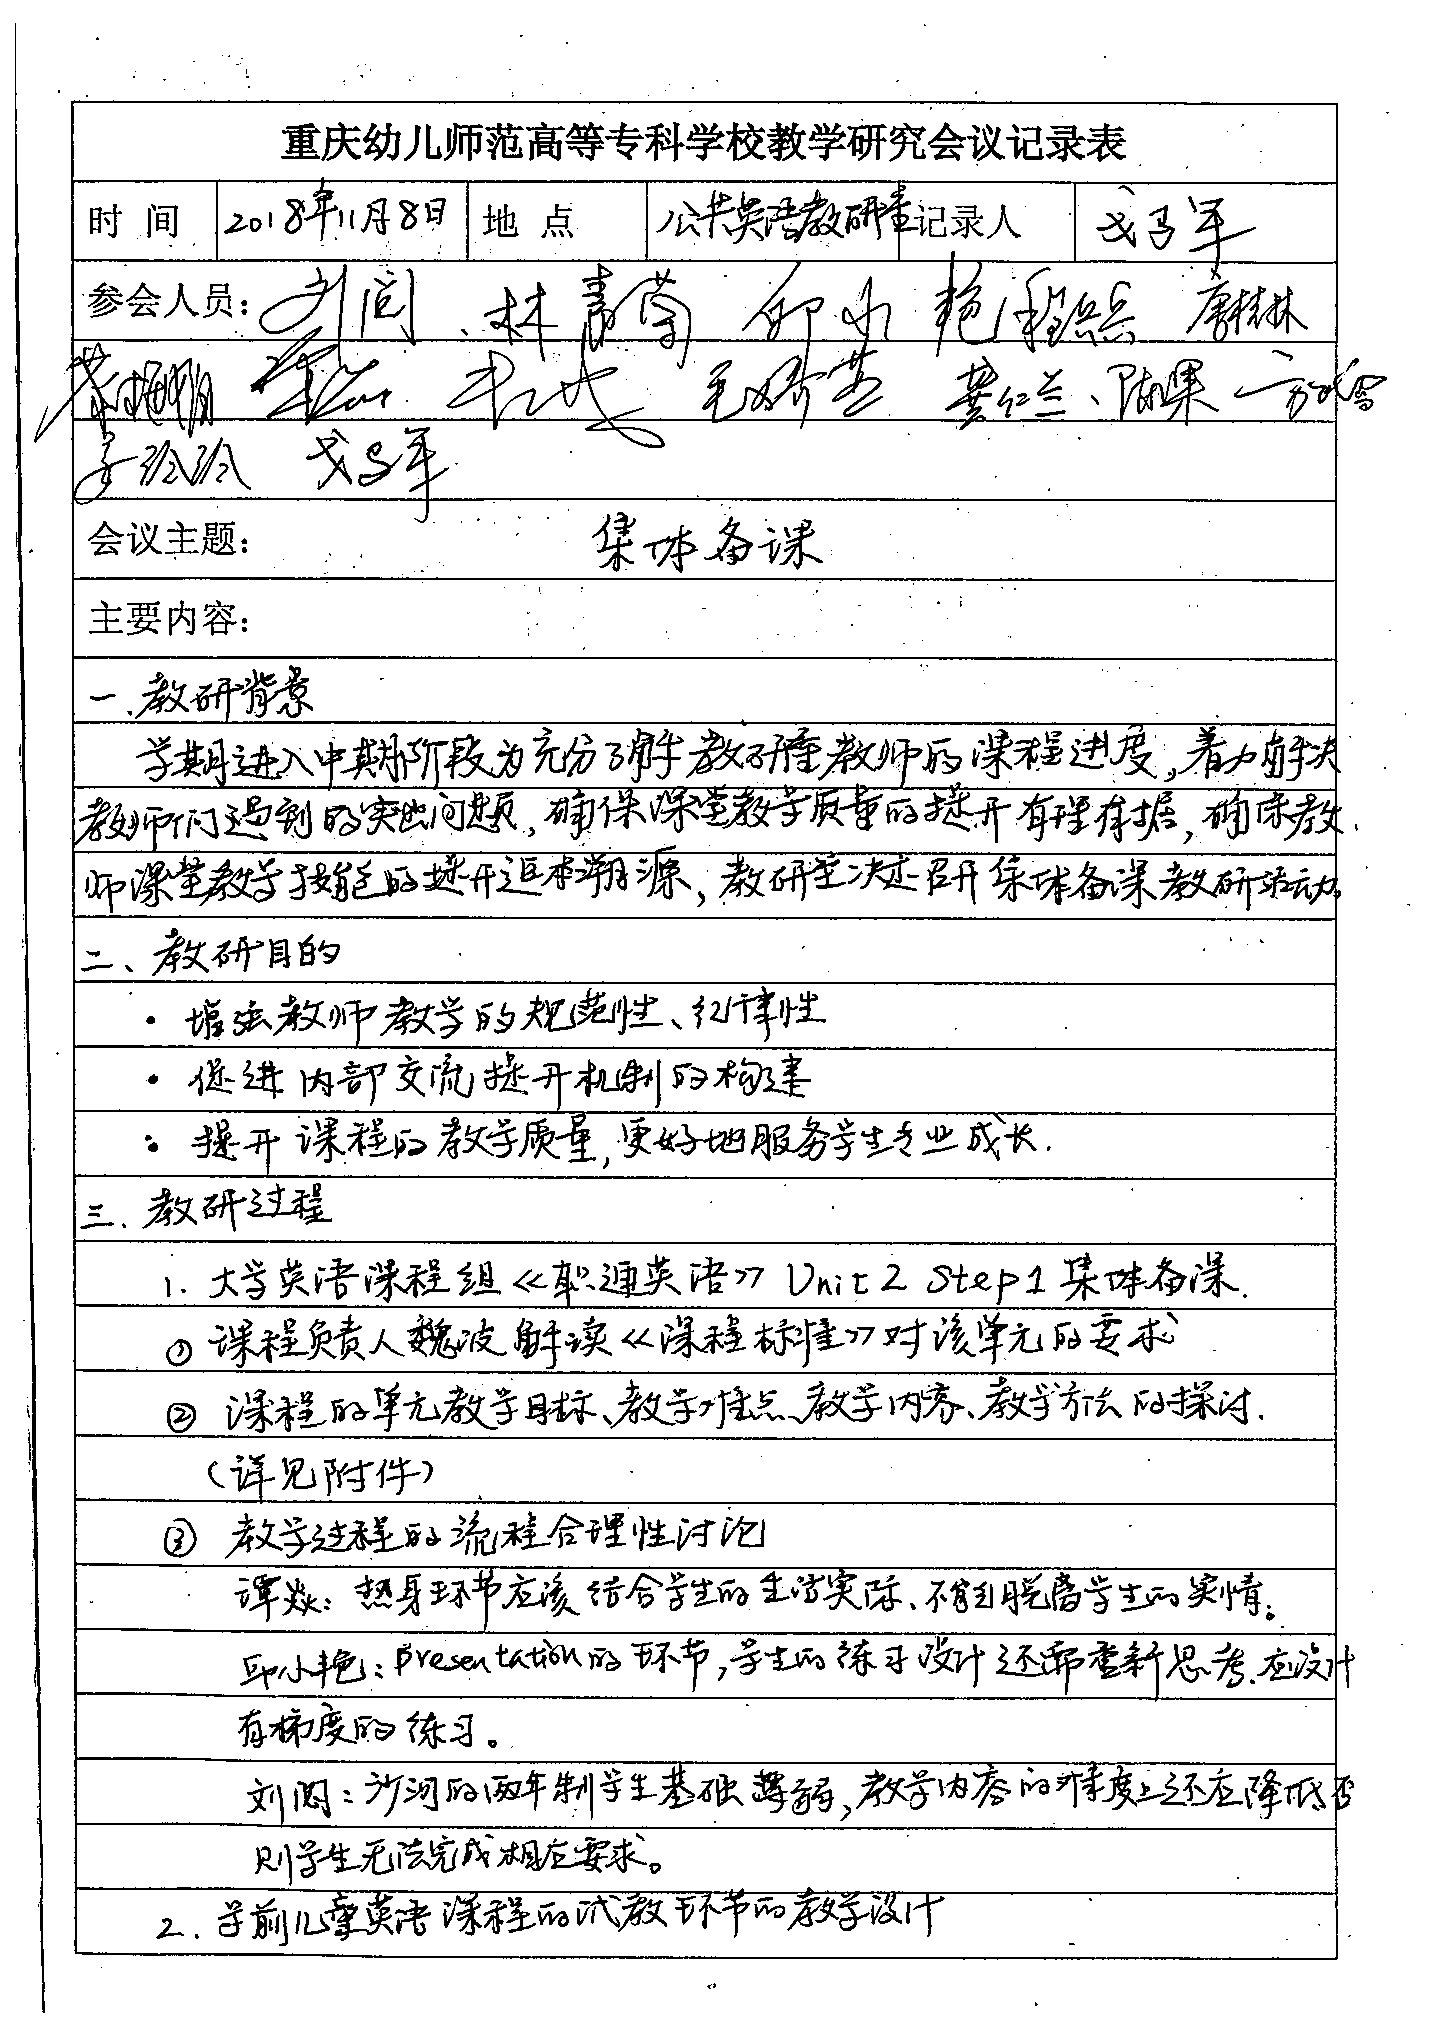 重庆幼儿师范高等专科学校教学研究会议记录表
时 间 2018年11月8日 地 点 公共英语教研室 记录人 戈马军
参会人员： 刘闰、林青 邱小艳 程 唐桂林
毛娇 龚仁兰、陈果
李玲玲 戈马军
会议主题： 集体备课
主要内容：
一.教研背景
学期进入中期阶段为充分了解教研室教师的课程进度，着力解决
教师们遇到的突出问题，确保课堂教学质量的提升有理有据，确保教
师课堂教学技能的提升追本溯源，教研室决定召开集体备课教研活动。
二、教研目的
· 增强教师教学的规范性、纪律性
· 促进内部交流提升机制的构建
· 提升课程的教学质量，更好地服务学生专业成长.
三.教研过程
1. 大学英语课程组《职通英语》Unit 2 Step 1 集体备课.
① 课程负责人魏波解读《课程标准》对该单元的要求
② 课程的单元教学目标、教学难点、教学内容、教学方法的探讨.
（详见附件）
③ 教学过程的流程合理性讨论
谭焱：热身环节应该结合学生的生活实际、不能脱离学生的实情。
邱小艳：Presentation的环节，学生的练习设计还需重新思考.应设计
有梯度的练习。
刘闰：沙河的两年制学生基础薄弱，教学内容的难度上还应降低否
则学生无法完成相应要求。
2. 学前儿童英语课程的试教环节的教学设计